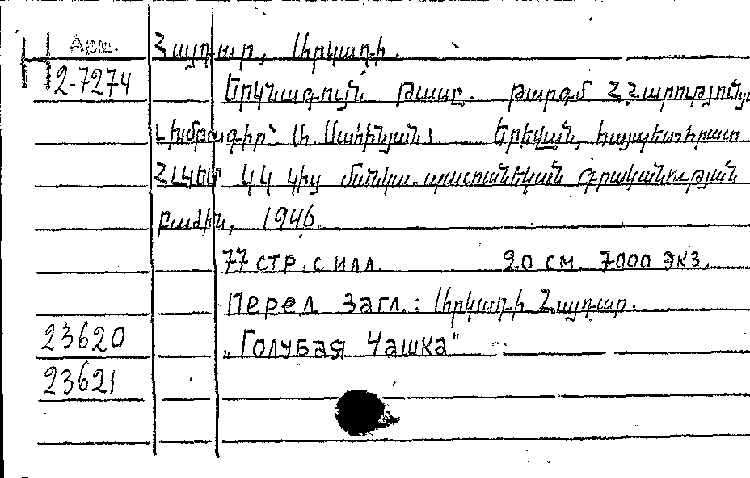 Н Арм.
2-7274
Հայդար, Արկադի.
Երկնագույն թասը. թարգմ. Հ. Հարությունյ
Խմբագիր՝ Ա. Սահինյան: Երեվան, հայպետհրատ
ՀԼԿԵՄ ԿԿ կից մանկա-պատանեկան գրականության
բաժին, 1946.
77 стр. с илл. 20 см. 7000 экз.
Перед загл.: Արկադի Հայդար.
23620 „Голубая чашка"
23621